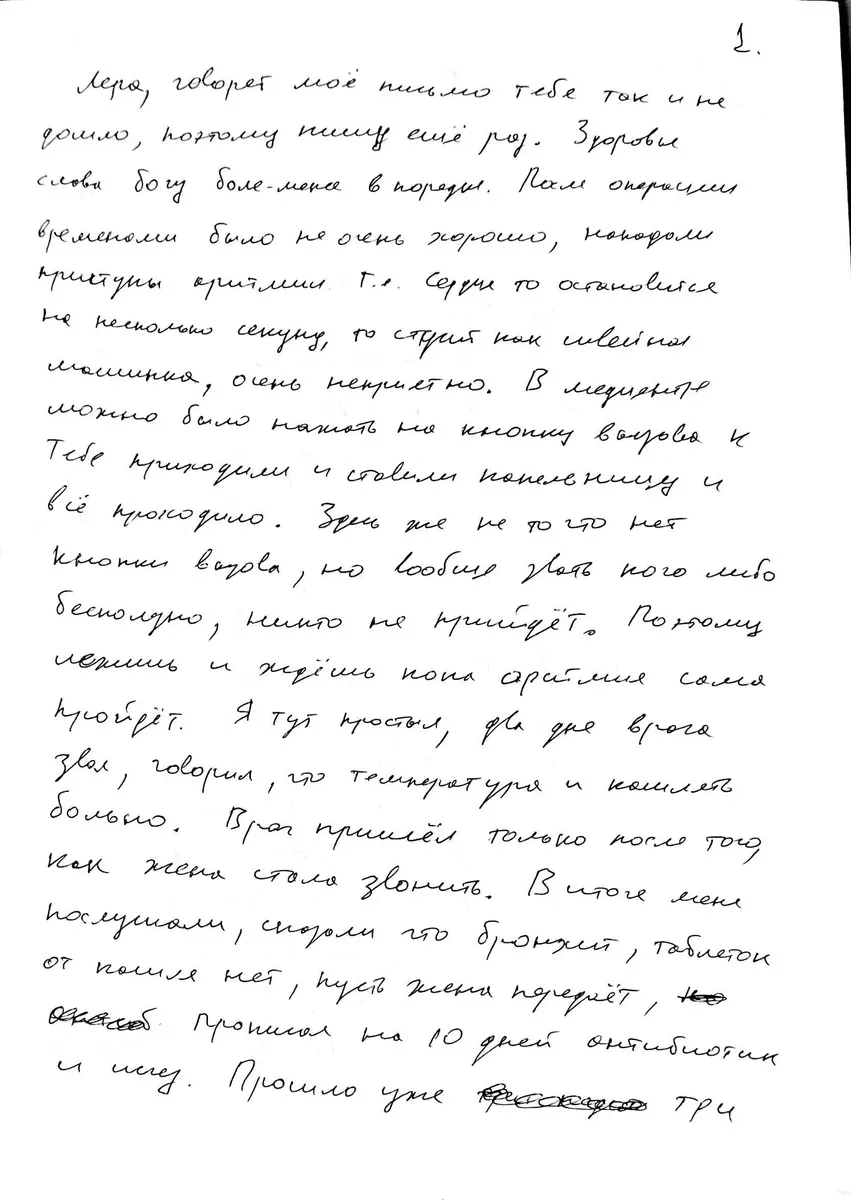 1.
Лера, говорят моё письмо тебе так и не
дошло, поэтому пишу ещё раз. Здоровье
слава богу боле-мене в порядке. После операции
временами было не очень хорошо, нападали
приступы аритмии т.е. сердце то остановится
на несколько секунд, то стучит как швейная
машинка, очень неприятно. В медцентре
можно было нажать на кнопку вызова к
тебе приходили и ставили капельницу и
всё проходило. Здесь же не то что нет
кнопки вызова, но вообще звать кого либо
бесполезно, никто не прийдёт. Поэтому
лежишь и ждёшь пока аритмия сама
пройдёт. Я тут простыл, два дня врача
звал, говорил, что температура и кашлять
больно. Врач пришёл только после того,
как жена стала звонить. В итоге меня
послушали, сказали что бронхит, таблеток
от кашля нет, пусть жена передаёт,
прописал на 10 дней антибиотик
и исчез. Прошло уже три